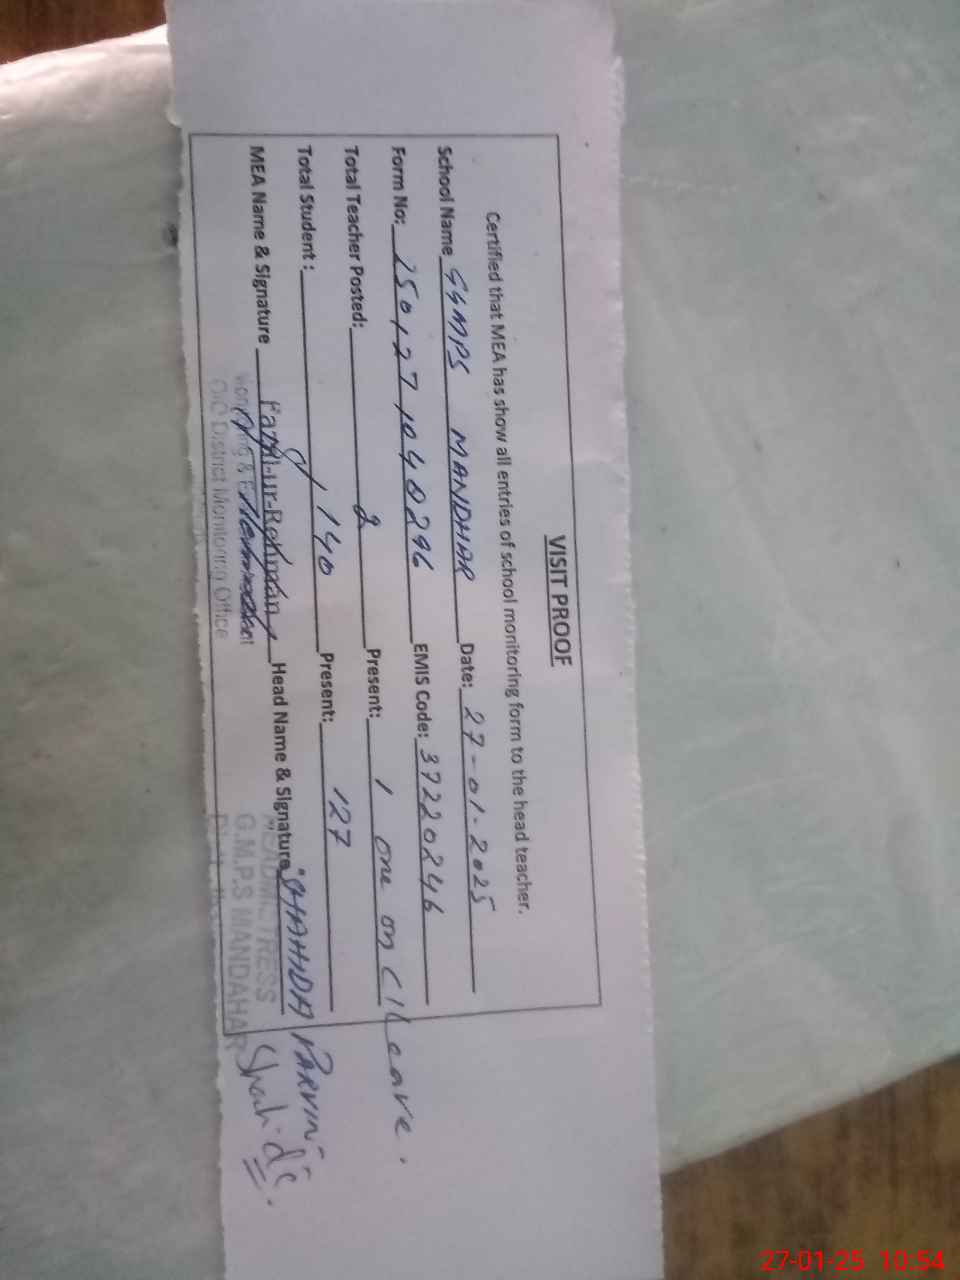 VISIT PROOF
Certified that MEA has show all entries of school monitoring form to the head teacher.
School Name GGMPS MANDHAR Date: 27-01-2025
Form No: 250127104 0296 EMIS Code: 37220246
Total Teacher Posted: 2 Present: 1 one on C/Leave.
Total Student: 140 Present: 127
MEA Name & Signature Fazal-ur-Rehman Head Name & Signature "SHAHIDA PARVIN"
Monitoring & Assistant HEADMISTRESS
O/O District Monitoring Office G.M.P.S MANDAHAR
27-01-25 10:54